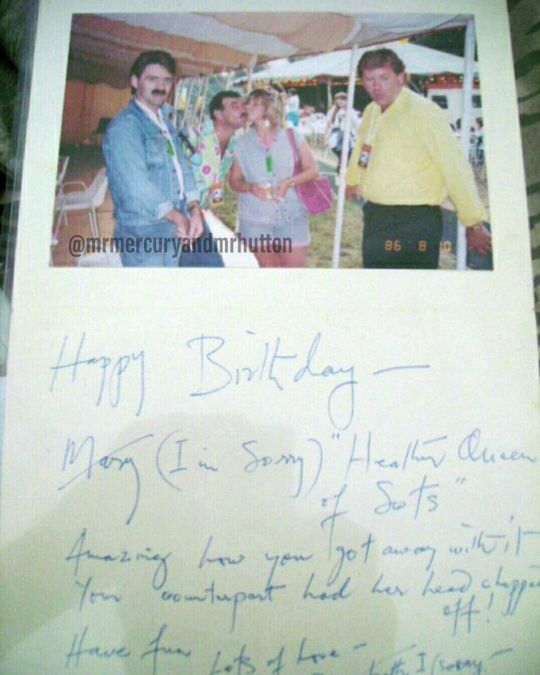 @mrmercuryandmrhutton
86 8 10
Happy Birthday —
Mary (I'm Sorry) "Heather Queen
of Sots"
Amazing how you got away with it
Your counterpart had her head chopped
off!
Have fun
Lots of Love —
I (sorry.